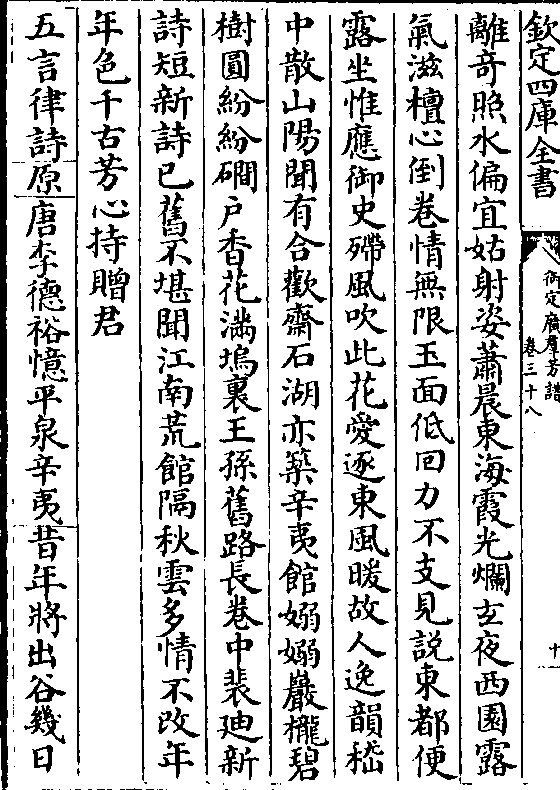 欽定四庫全書
御定廣羣芳譜
卷三十八
十
離奇照水偏宜姑射姿蕭晨東海霞光爛玄夜西園露
氣滋檀心倒卷情無限玉面低回力不支見說東都便
露坐惟應御史殢風吹此花愛逐東風暖故人逸韻嵇
中散山陽聞有合歡齋石湖亦築辛夷館嫋嫋巖櫳碧
樹圓紛紛磵戶香花滿塢裏王孫舊路長卷中裴廸新
詩短新詩已舊不堪聞江南荒館隔秋雲多情不改年
年色千古芳心持贈君
五言律詩原唐李德裕憶平泉辛夷昔年將出谷幾日